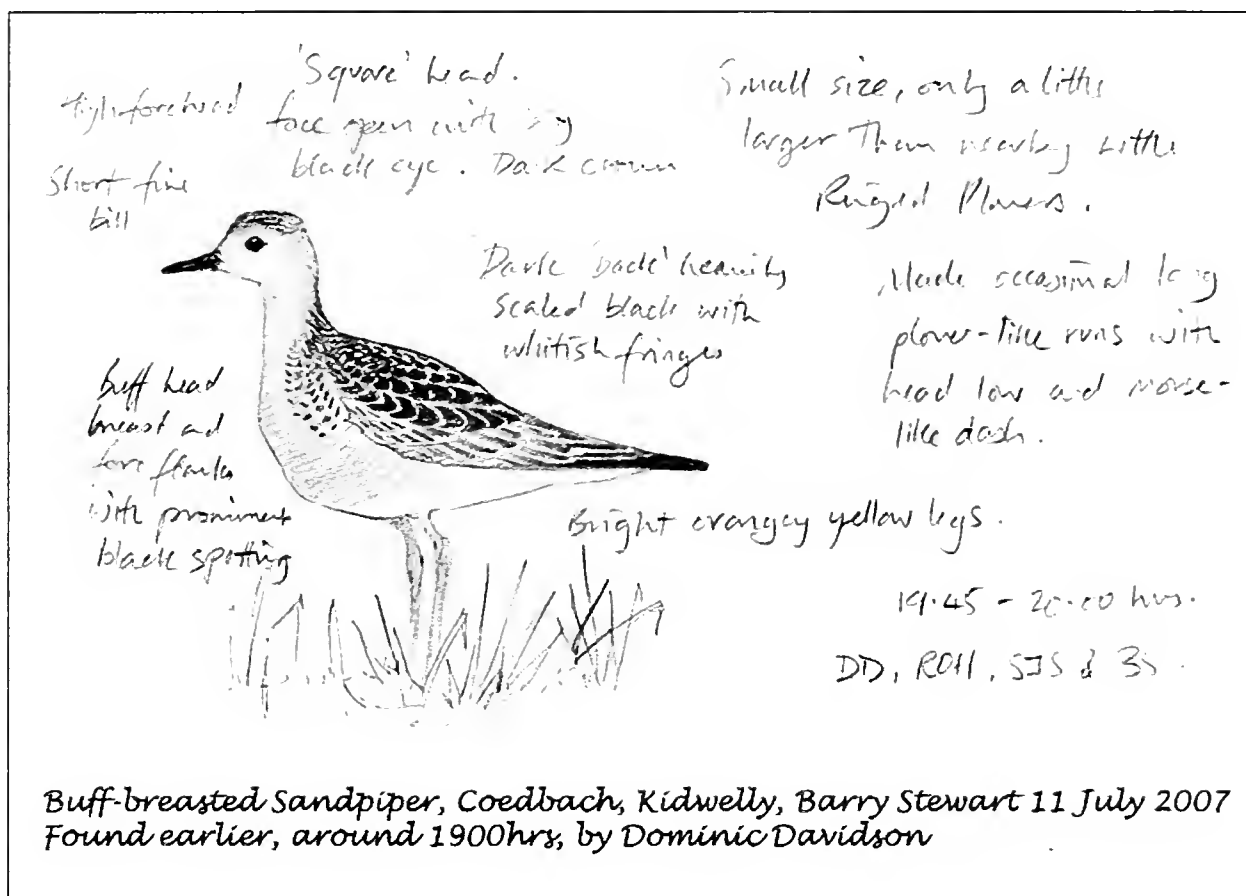 High forehead
'Square' head.
face open with big
black eye. Dark crown
Short fine
bill
Small size, only a little
larger than nearby Little
Ringed Plovers.
Dark 'back' heavily
scaled black with
whitish fringes
Made occasional long
plover-like runs with
head low and morse-
like dash.
buff head
breast and
fore flanks
with prominent
black spotting
Bright orangey yellow legs.
19.45 - 20.00 hrs.
DD, ROH, SJS & BS.
Buff-breasted Sandpiper, Coedbach, Kidwelly, Barry Stewart 11 July 2007
Found earlier, around 1900hrs, by Dominic Davidson